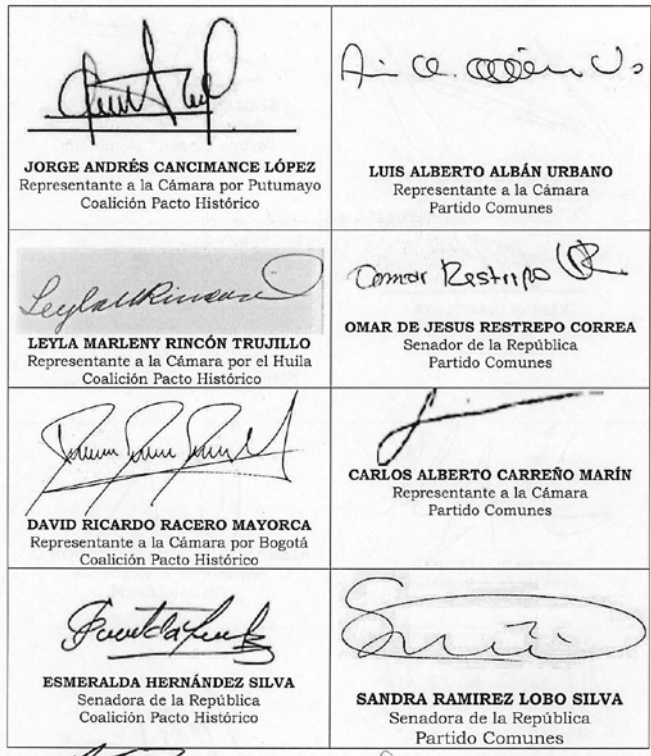 JORGE ANDRÉS CANCIMANCE LÓPEZ
Representante a la Cámara por Putumayo
Coalición Pacto Histórico
LUIS ALBERTO ALBÁN URBANO
Representante a la Cámara
Partido Comunes
LEYLA MARLENY RINCÓN TRUJILLO
Representante a la Cámara por el Huila
Coalición Pacto Histórico
Omar Restrepo
OMAR DE JESUS RESTREPO CORREA
Senador de la República
Partido Comunes
DAVID RICARDO RACERO MAYORCA
Representante a la Cámara por Bogotá
Coalición Pacto Histórico
CARLOS ALBERTO CARREÑO MARÍN
Representante a la Cámara
Partido Comunes
ESMERALDA HERNÁNDEZ SILVA
Senadora de la República
Coalición Pacto Histórico
SANDRA RAMIREZ LOBO SILVA
Senadora de la República
Partido Comunes